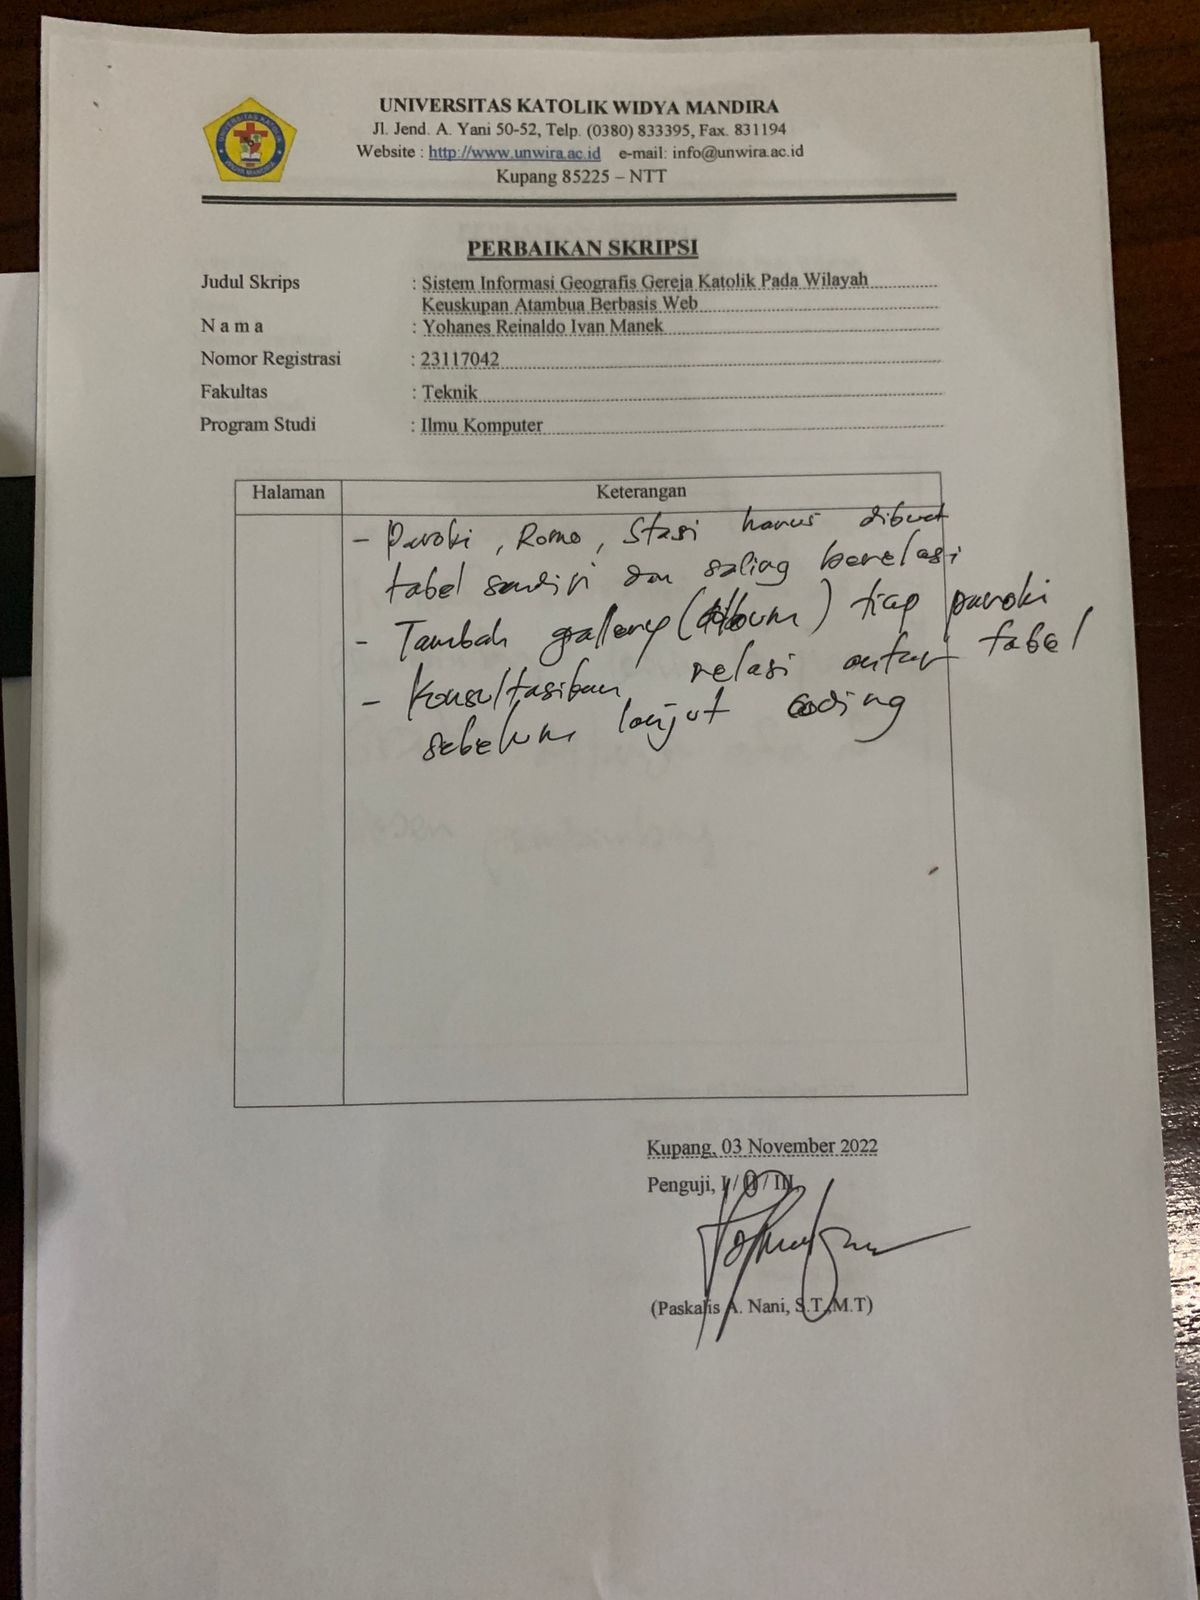 UNIVERSITAS KATOLIK WIDYA MANDIRA
Jl. Jend. A. Yani 50-52, Telp. (0380) 833395, Fax. 831194
Website : http://www.unwira.ac.id e-mail: info@unwira.ac.id
Kupang 85225 – NTT
UNIVERSITAS KATOLIK
WIDYA MANDIRA
PERBAIKAN SKRIPSI
Judul Skrips : Sistem Informasi Geografis Gereja Katolik Pada Wilayah
Keuskupan Atambua Berbasis Web
N a m a : Yohanes Reinaldo Ivan Manek
Nomor Registrasi : 23117042
Fakultas : Teknik
Program Studi : Ilmu Komputer
Halaman Keterangan
- Paroki, Romo, Stasi harus dibuat
tabel sendiri dan saling berelasi
- Tambah gallery (Album) tiap paroki
- Konsultasikan relasi antar tabel
sebelum lanjut coding
Kupang, 03 November 2022
Penguji, I / II / III
(Paskalis A. Nani, S.T.,M.T)